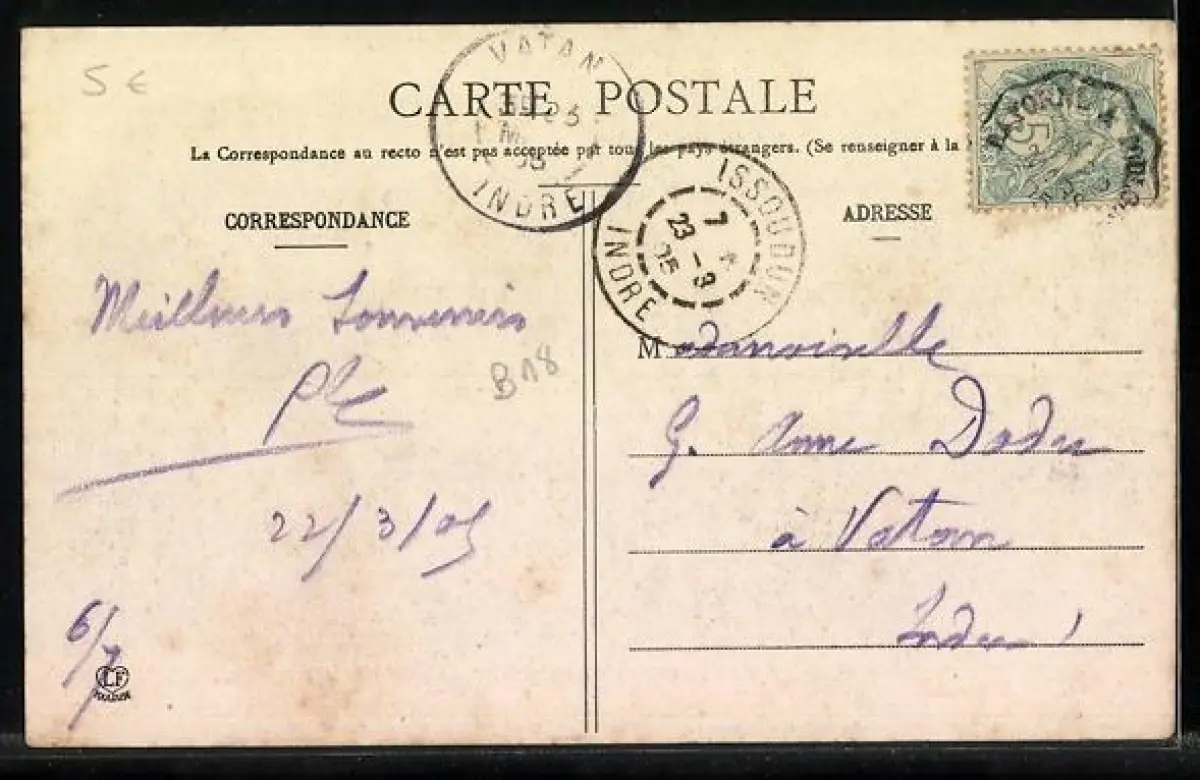 5 €
CARTE POSTALE
La Correspondance au recto n'est pas acceptée par tous les pays étrangers. (Se renseigner à la
CORRESPONDANCE
ADRESSE
VATAN
INDRE
ISSOUDUN
7
23 - 3
05
INDRE
BAYONNE A
5
Meilleurs Souvenirs
22/3/05
6/7
LF
B18
Mademoiselle
G. Anne Dodu
à Vatan
Indre